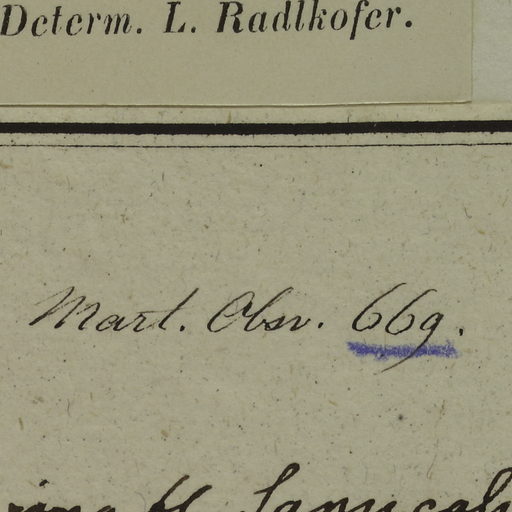 Determ. L. Radlkofer.
Mart. Obsv. 669.